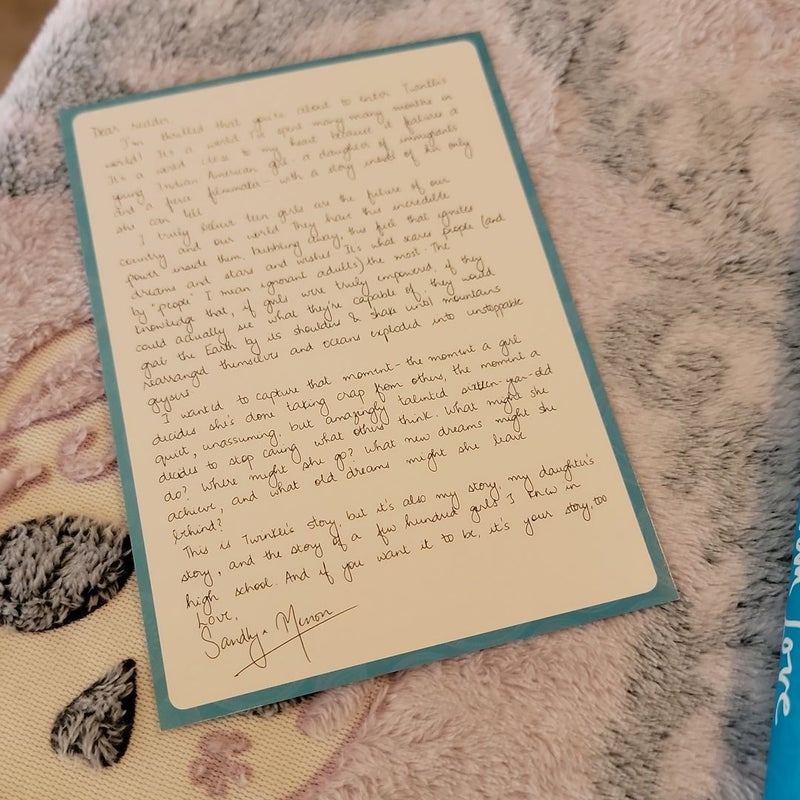 Dear reader,
I'm thrilled that you're about to enter Twinkle's
world! It's a world I've spent many, many months in
It's a world close to my heart because it features a
young Indian American girl, a daughter of immigrants
and a fierce filmmaker - with a story inside of her only
she can tell
I truly believe teen girls are the future of our
country and our world. They have this incredible
power inside them, bubbling away, this fuel that ignites
dreams and stars and wishes. It's what scares people (and
by "people" I mean ignorant adults) the most. The
knowledge that, if girls were truly empowered, if they
could actually see what they're capable of, they would
grab the Earth by its shoulders & shake until mountains
rearranged themselves and oceans exploded into unstoppable
geysers
I wanted to capture that moment- the moment a girl
decides she's done taking crap from others, the moment a
quiet, unassuming, but amazingly talented sixteen-year-old
decides to stop caring what others think. What might she
do? Where might she go? What new dreams might she
achieve, and what old dreams might she leave
behind?
This is Twinkle's story, but it's also my story, my daughter's
story, and the story of a few hundred girls I knew in
high school. And if you want it to be, it's your story, too
Love,
Sandhya Menon
Love